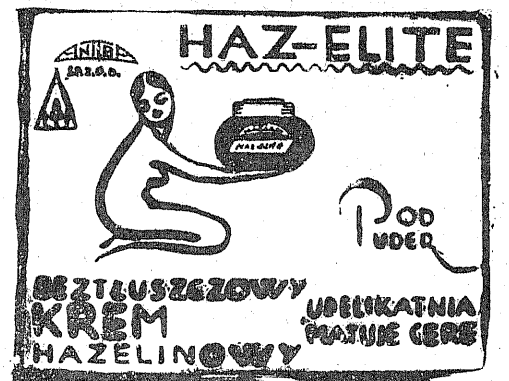 HAZ-ELITE
ANIDA
POD
PUDER
BEZTŁUSZCZOWY
KREM
HAZELINOWY
UDELIKATNIA
MATUJE CERĘ